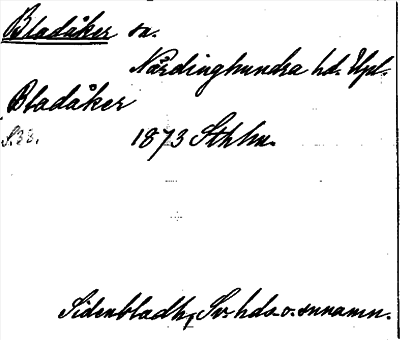 Bladåker sn.
Närdinghundra hd. Upl.
Bladåker
S.33. 1873 Sthlm.
Sidenbladh, Sv. hds. o. snnamn.